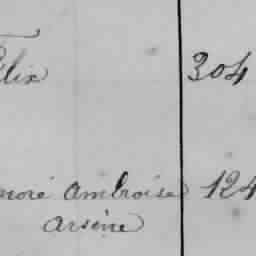 élix 304
noré ambroise 124
arsène